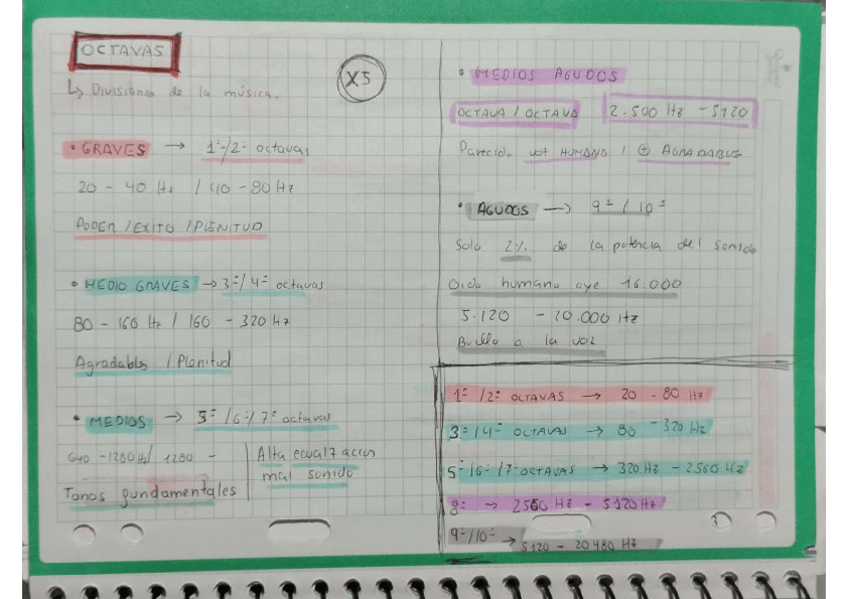 OCTAVAS
X5
↳ Divisiones de la música.
• GRAVES → 1ª/2ª octavas
20 - 40 Hz / 40 - 80 Hz
PODER / EXITO / PLENITUD
• MEDIO GRAVES → 3ª/4ª octavas
80 - 160 Hz / 160 - 320 Hz
Agradables / Plenitud
• MEDIOS → 5ª/6ª/7ª octavas
640 - 1280 Hz / 1280 -
Tonos fundamentales
Alta ecualización
mal sonido
• MEDIOS AGUDOS
OCTAVA / OCTAVA 2.500 Hz - 5120
Parecido voz HUMANA / ⊕ AGRADABLE
• AGUDOS → 9ª / 10ª
Solo 2% de la potencia del sonido
Oido humano oye 16.000
5.120 - 20.000 Hz
Brillo a la voz
1ª /2ª OCTAVAS → 20 - 80 Hz
3ª /4ª OCTAVAS → 80 - 320 Hz
5ª/6ª/7ª OCTAVAS → 320 Hz - 2560 Hz
8ª → 2560 Hz - 5120 Hz
9ª/10ª → 5120 - 20480 Hz